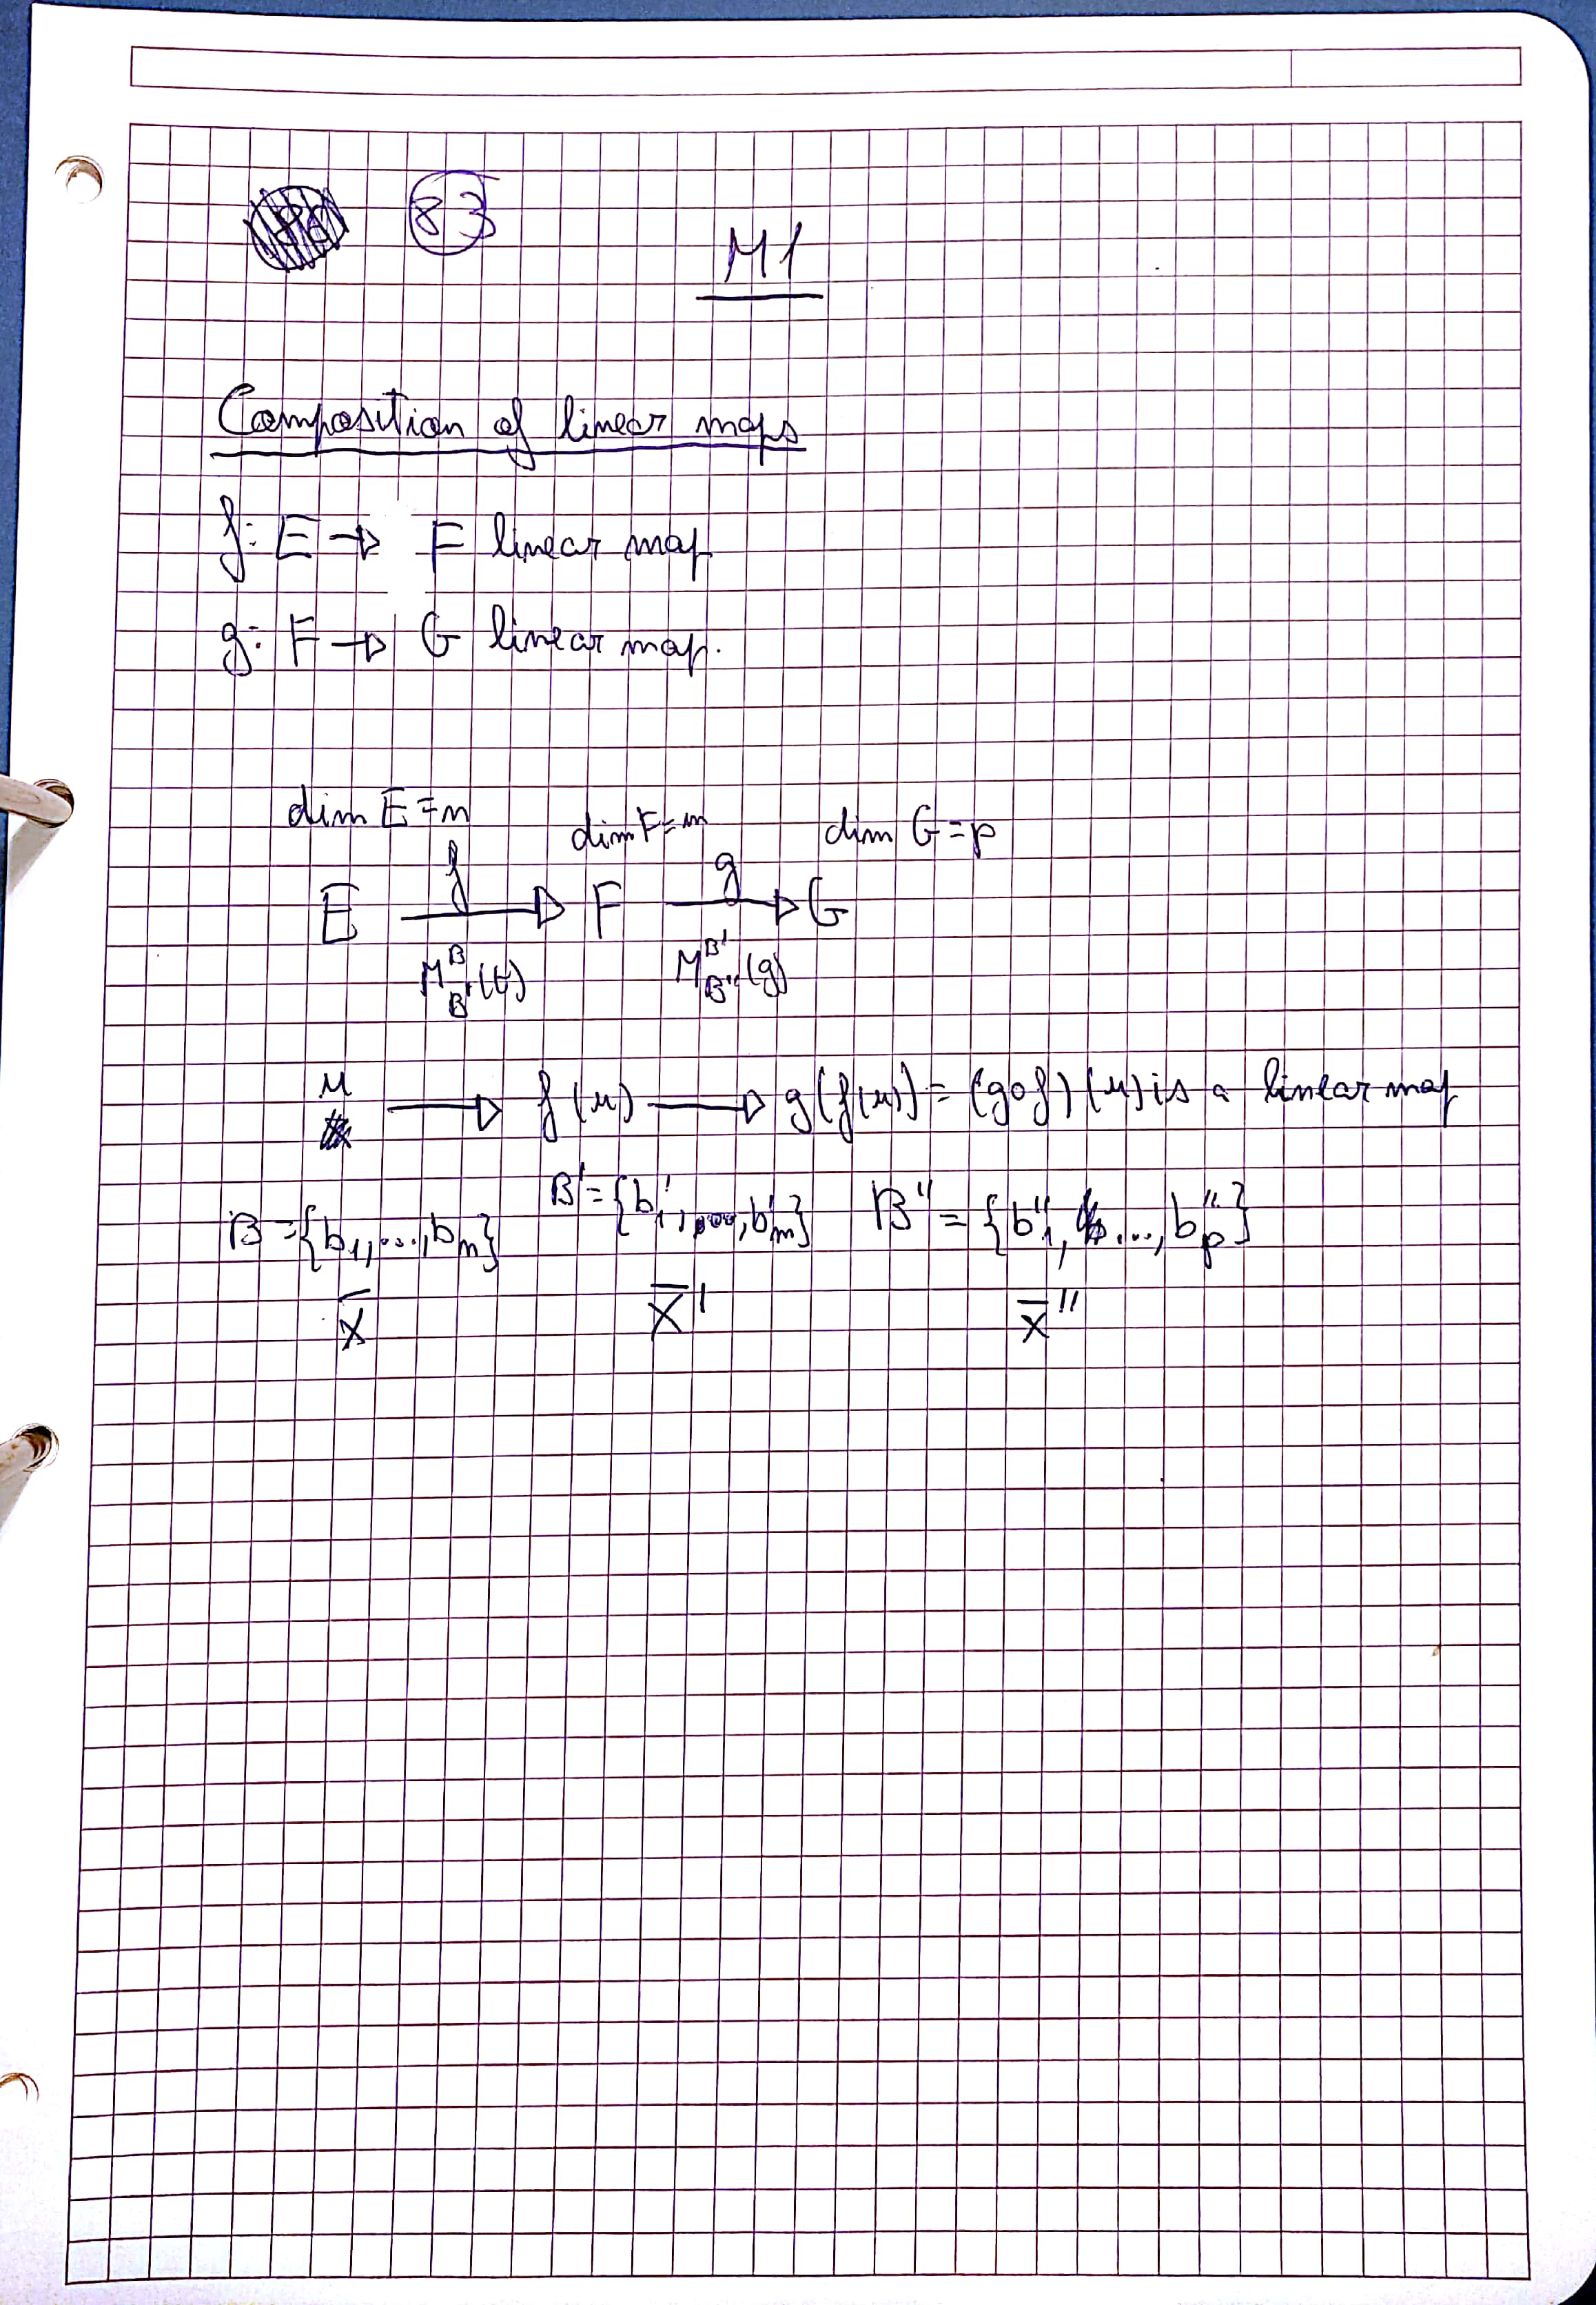 83
M1
Composition of linear maps
f: E → F linear map
g: F → G linear map.
dim E = n dim F = m dim G = p
E f → F g → G
M^B_B'(f) M^B'_B''(g)
u → f(u) → g(f(u)) = (g∘f)(u) is a linear map
B = {b₁, ..., bₙ} B' = {b'₁, ..., b'ₘ} B'' = {b''₁, ..., b''ₚ}
x̄ x̄' x̄''